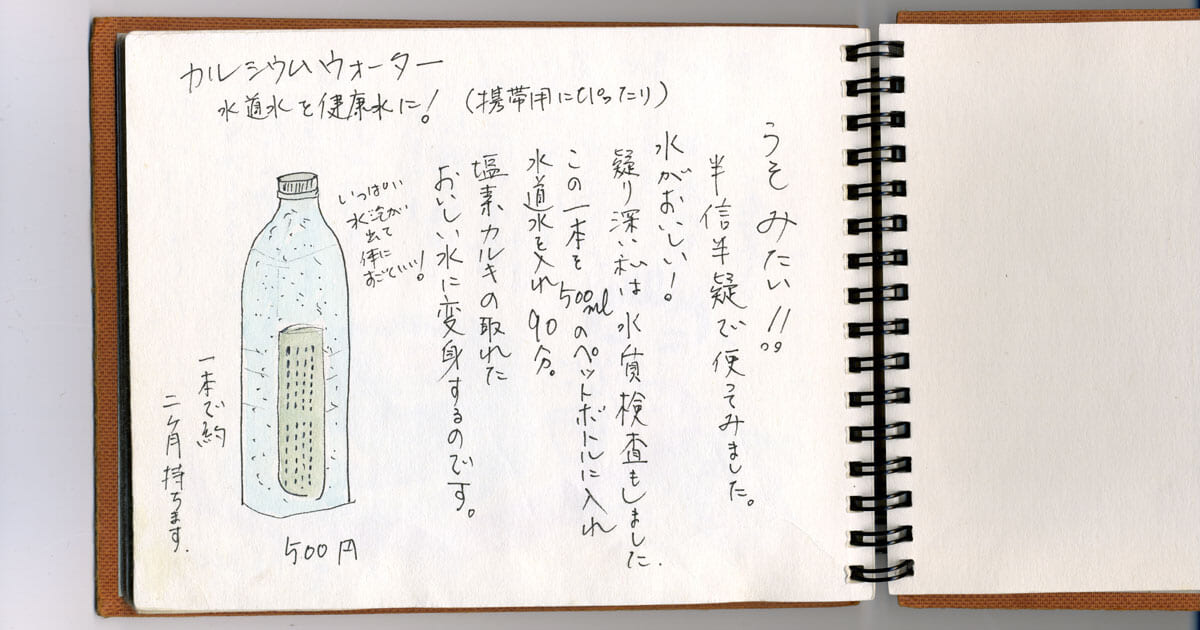 カルシウムウォーター
水道水を健康水に！（携帯用にぴったり）
うそみたい!!
半信半疑で使ってみました。
水がおいしい！
疑り深い私は水質検査もしました.
この一本を500mlのペットボトルに入れ
水道水を入れ90分。
塩素カルキの取れた
おいしい水に変身するのです。
いっぱい
水泡が
出て
体に
すごくいい！
一本で約
二ヶ月持ちます.
500円